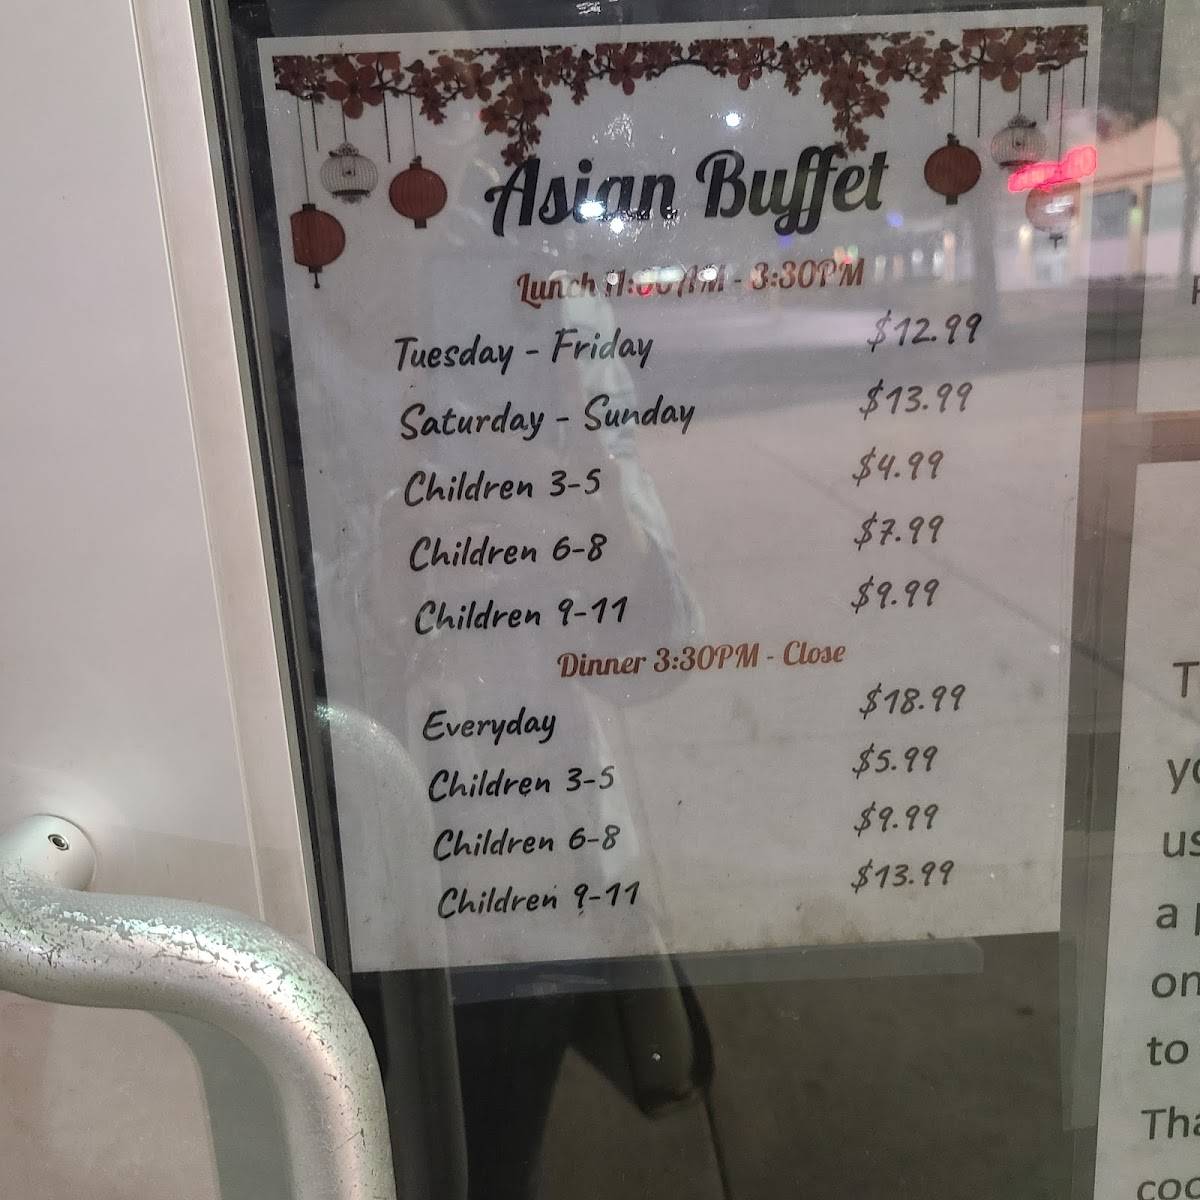 Asian Buffet
Lunch 11:00AM - 3:30PM
Tuesday - Friday $12.99
Saturday - Sunday $13.99
Children 3-5 $4.99
Children 6-8 $7.99
Children 9-11 $9.99
Dinner 3:30PM - Close
Everyday $18.99
Children 3-5 $5.99
Children 6-8 $9.99
Children 9-11 $13.99
us
a
on
to